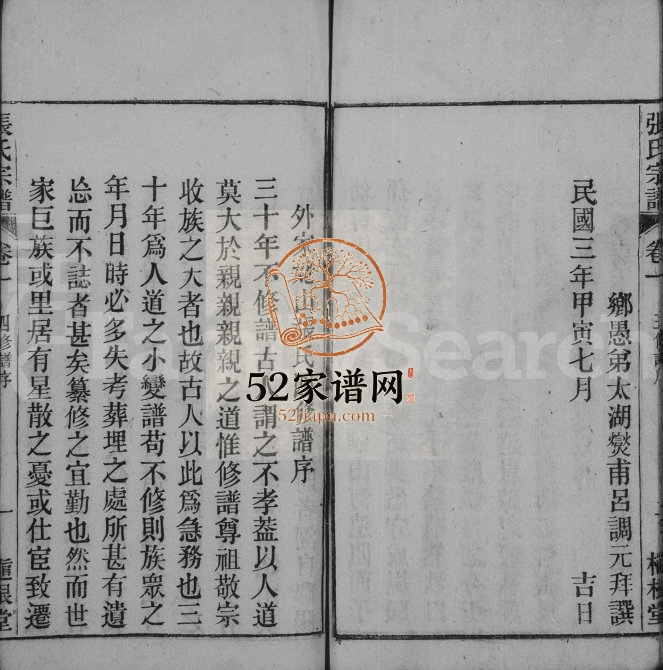 張氏宗譜
卷一
鄉愚弟太湖燮甫呂調元拜譔
民國三年甲寅七月 吉日
外宋
張氏
譜序
三十年不修譜古
謂之不孝葢以人道
莫大於親親親親之道惟修譜尊祖敬宗
收族之大者也故古人以此爲急務也三
十年爲人道之小變譜苟不修則族衆之
年月日時必多失考葬埋之處所甚有遺
忩而不誌者甚矣纂修之宜勤也然而世
家巨族或里居有星散之憂或仕宦致遷
張氏宗譜
卷一
四修譜序
一
52家谱网
52jiapu.com
Search